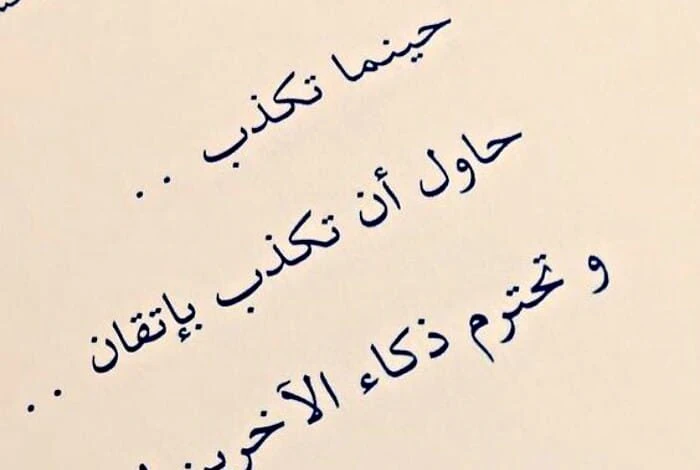 حينما تكذب ..
حاول أن تكذب بإتقان ..
و تحترم ذكاء الآخرين